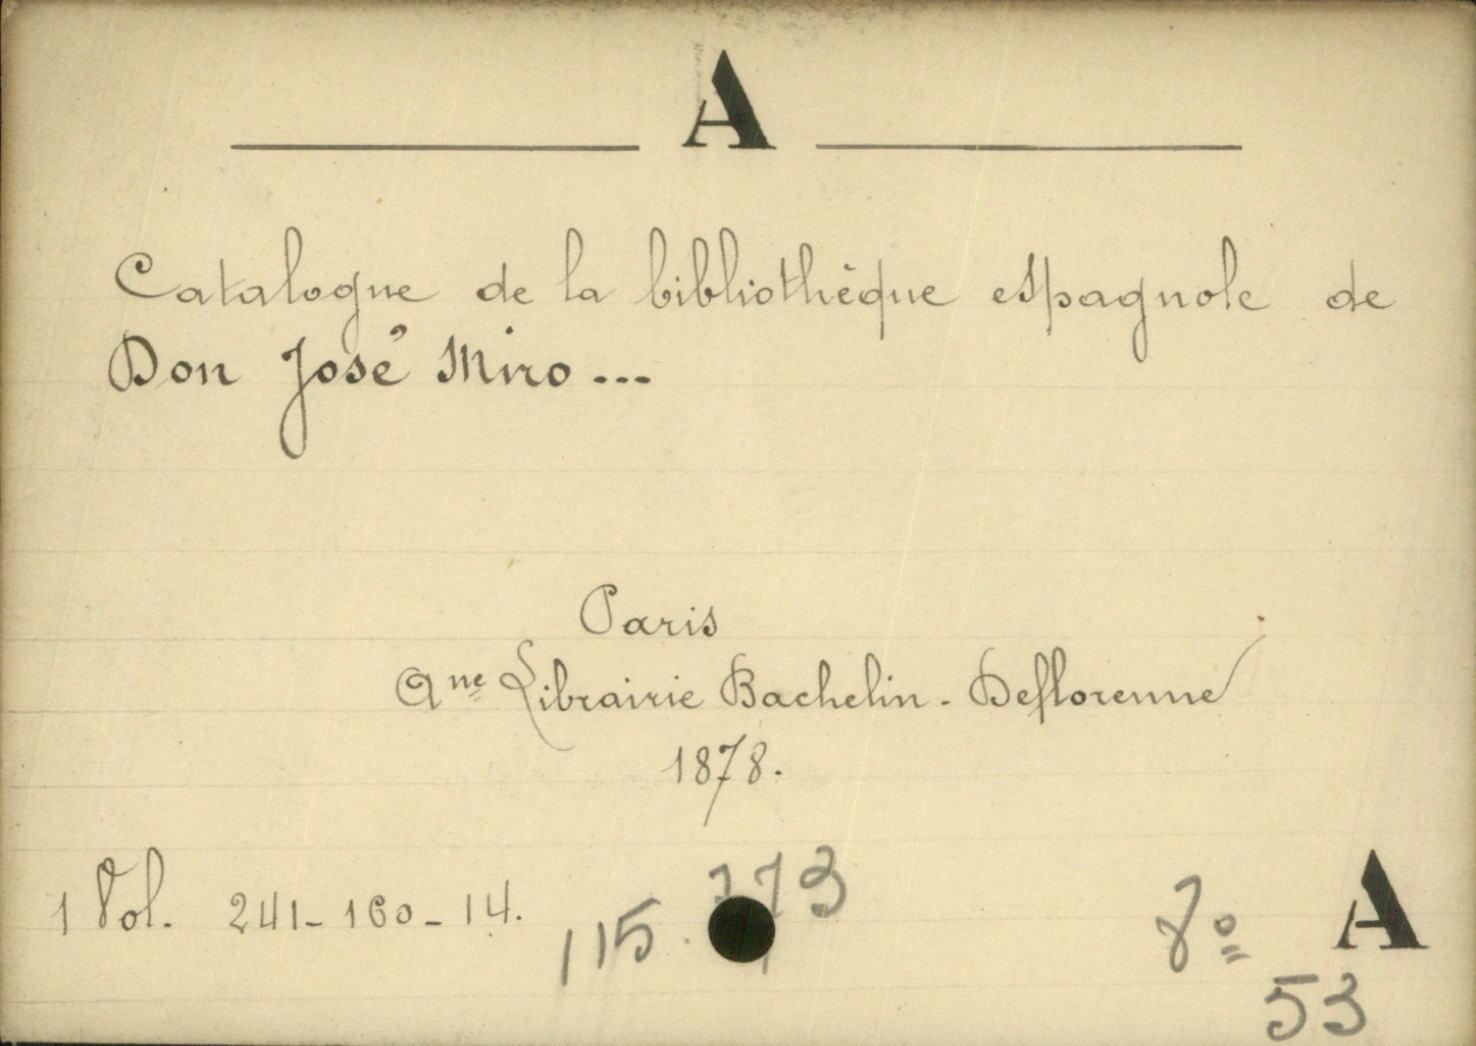 A
Catalogue de la bibliothèque espagnole de
Don José Miro ...
Paris
Ane Librairie Bachelin - Deflorenne
1878.
1 Vol. 241 - 160 - 14.
115.773
8º A
53